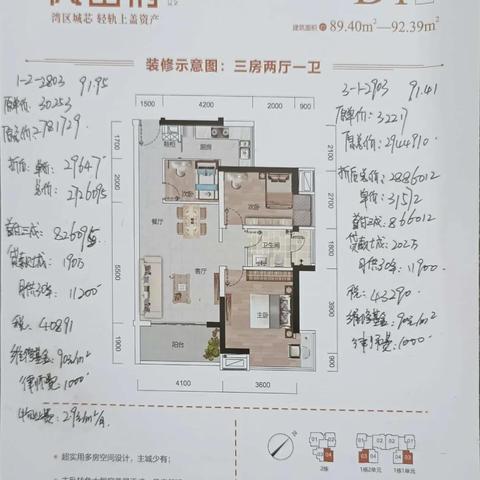 湾区城芯 轻轨上盖资产
建筑面积 约 89.40m²—92.39m²
装修示意图：三房两厅一卫
1-2-2803 91.95
原单价: 30253
原总价: 2781729.
折后: 单价: 29647
总价: 2726095
首付三成: 826095
贷款七成: 190万
月供30年: 11200
税: 40891
维修基金: 90元/m²
律师费: 1000
物业费: 2.9元/m²/月
3-1-2903 91.41
原单价: 32217
原总价: 2944910.
折后总价: 2886012
单价: 31572
首付三成: 866012
贷款七成: 202万
月供30年: 11900
税: 43290
维修基金: 90元/m²
律师费: 1000
1500
4200
2000
900
1700
2500
5500
1900
2100
2700
1800
3900
4100
3600
厨房
次卧
次卧
餐厅
卫生间
客厅
主卧
阳台
超实用多房空间设计，主城少有；
2栋
1栋2单元
1栋1单元